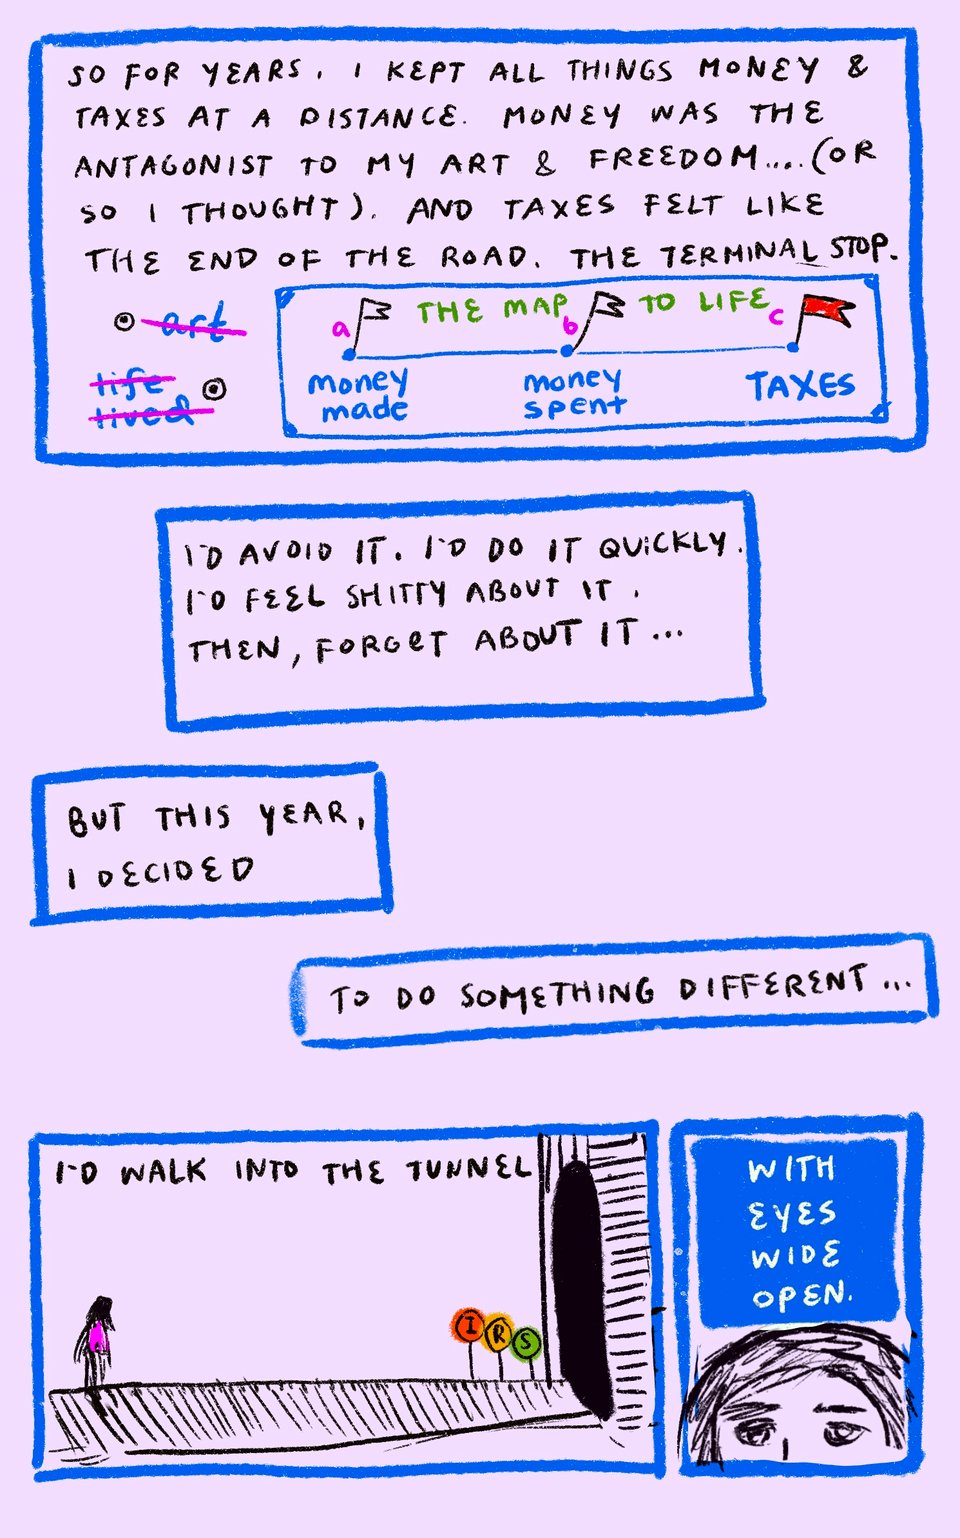 SO FOR YEARS, I KEPT ALL THINGS MONEY &
TAXES AT A DISTANCE. MONEY WAS THE
ANTAGONIST TO MY ART & FREEDOM....(OR
SO I THOUGHT). AND TAXES FELT LIKE
THE END OF THE ROAD. THE TERMINAL STOP.
art
life
lived
THE MAP TO LIFE
a
b
c
money
made
money
spent
TAXES
I'D AVOID IT. I'D DO IT QUICKLY.
I'D FEEL SHITTY ABOUT IT.
THEN, FORGET ABOUT IT...
BUT THIS YEAR,
I DECIDED
TO DO SOMETHING DIFFERENT...
I'D WALK INTO THE TUNNEL
I R S
WITH
EYES
WIDE
OPEN.